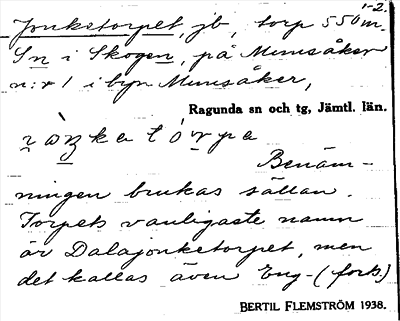 1-2.
Jonketorpet, jb, torp 550 m.
Sn i Skogen, på Munsåker
n:r 1 i byn Munsåker,
Ragunda sn och tg, Jämtl. län.
Benäm-
ningen brukas sällan.
Torpets vanligaste namn
är Dalajonketorpet, men
det kallas även Eng- (forts.)
BERTIL FLEMSTRÖM 1938.